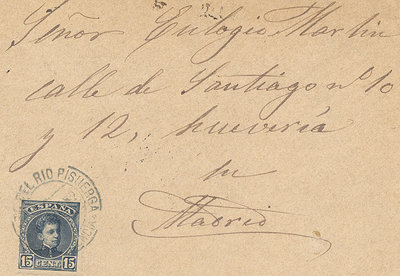 Señor Eulogio Martin
calle de Santiago nº 10
y 12, huevería
en
Madrid
DEL RIO PISUERGA
ESPAÑA
15 CENT. 15